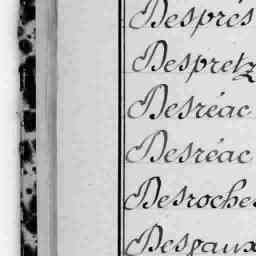 Després
Despretz
Desréac
Desréac
Desroches
Desgaux